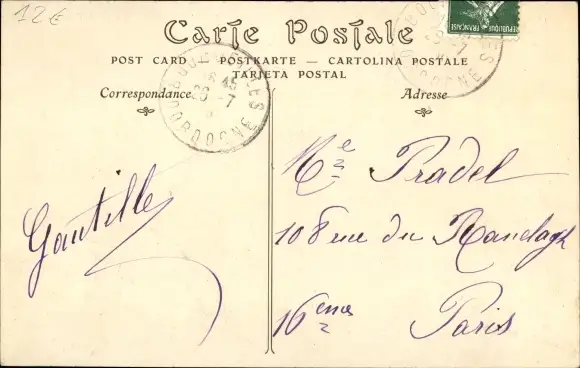 12€
Carte Postale
POST CARD — POSTKARTE — CARTOLINA POSTALE
TARJETA POSTAL
Correspondance
Adresse
FRANÇAISE
45
26 -7
DORDOGNE
Mle Pradel
108 rue du Ranelagh
16eme Paris
Gautille